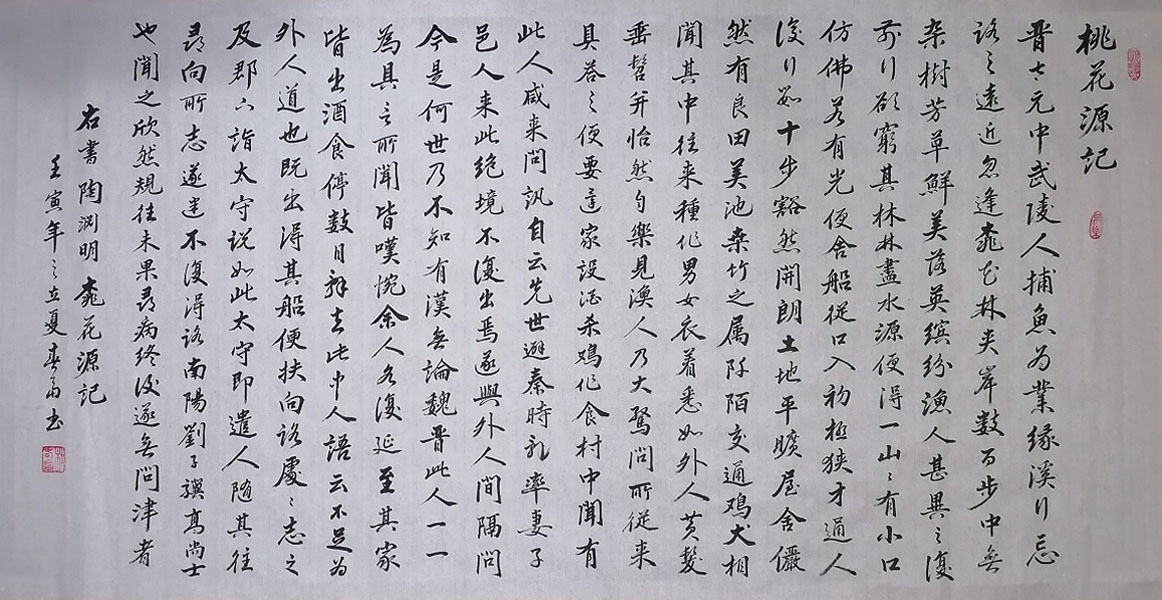 桃花源記
晋太元中武陵人捕魚为業缘溪行忘
路之遠近忽逢桃花林夹岸数百步中無
杂樹芳草鮮美落英缤纷漁人甚異之復
前行欲窮其林林盡水源便得一山〻有小口
仿佛若有光便舍船從口入初極狭才通人
復行数十步豁然開朗土地平曠屋舍儼
然有良田美池桑竹之属阡陌交通鸡犬相
聞其中往来種作男女衣着悉如外人黄髮
垂髫并怡然自樂見漁人乃大驚問所從来
具答之便要還家設酒杀鸡作食村中聞有
此人咸来問訊自云先世避秦時乱率妻子
邑人来此绝境不復出焉遂與外人間隔問
今是何世乃不知有漢無論魏晋此人一一
為具言所聞皆嘆惋余人各復延至其家
皆出酒食停数日辞去此中人語云不足为
外人道也既出得其船便扶向路處〻志之
及郡下詣太守説如此太守即遣人随其往
尋向所志遂迷不復得路南陽劉子驥高尚士
也聞之欣然規往未果尋病終後遂無問津者
右書陶渊明桃花源記
壬寅年之立夏春书